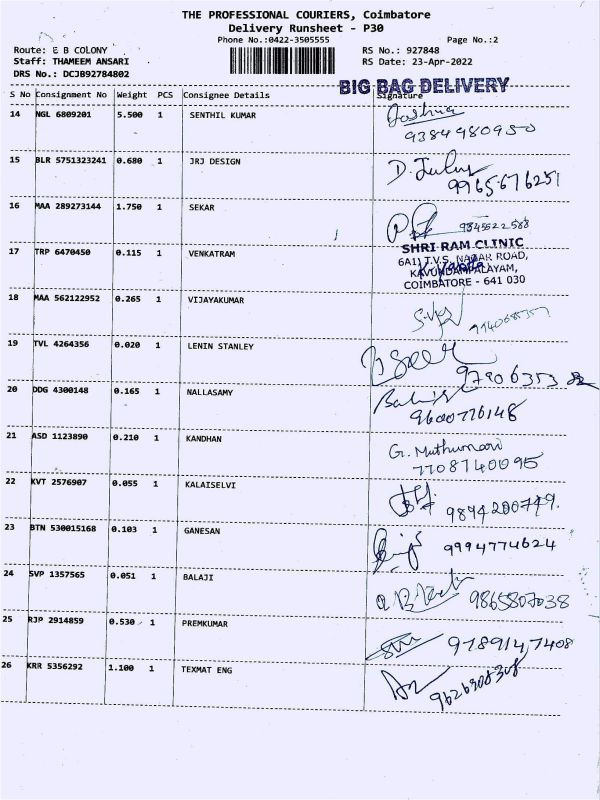 THE PROFESSIONAL COURIERS, Coimbatore
Delivery Runsheet - P30
Phone No.:0422-3505555 Page No.:2
Route: E B COLONY RS No.: 927848
Staff: THAMEEM ANSARI RS Date: 23-Apr-2022
DRS No.: DCJB92784802
BIG BAG DELIVERY
S No Consignment No Weight PCS Consignee Details Signature
14 NGL 6809201 5.500 1 SENTHIL KUMAR
9384980950
15 BLR 5751323241 0.680 1 JRJ DESIGN
9965676251
16 MAA 289273144 1.750 1 SEKAR
9845522588
SHRI RAM CLINIC
17 TRP 6470450 0.115 1 VENKATRAM
6A1) T.V.S. NAGAR ROAD,
KAVUNDAMPALAYAM,
COIMBATORE - 641 030
18 MAA 562122952 0.265 1 VIJAYAKUMAR
19 TVL 4264356 0.020 1 LENIN STANLEY
20 DDG 4300148 0.165 1 NALLASAMY
9600776148
21 ASD 1123890 0.210 1 KANDHAN
G. Muthumari
7708740095
22 KVT 2576907 0.055 1 KALAISELVI
9894200779.
23 BTN 530015168 0.103 1 GANESAN
9994774624
24 SVP 1357565 0.051 1 BALAJI
9865807038
25 RJP 2914859 0.530 1 PREMKUMAR
9789147408
26 KRR 5356292 1.100 1 TEXMAT ENG